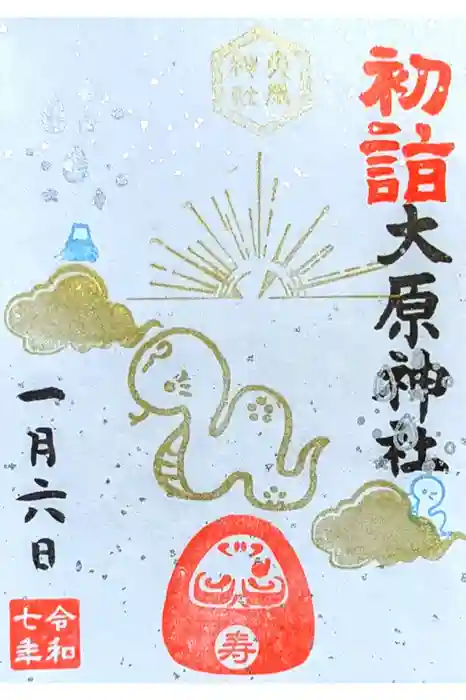 初詣
大原神社
大原神社
一月六日
令和
七年
寿